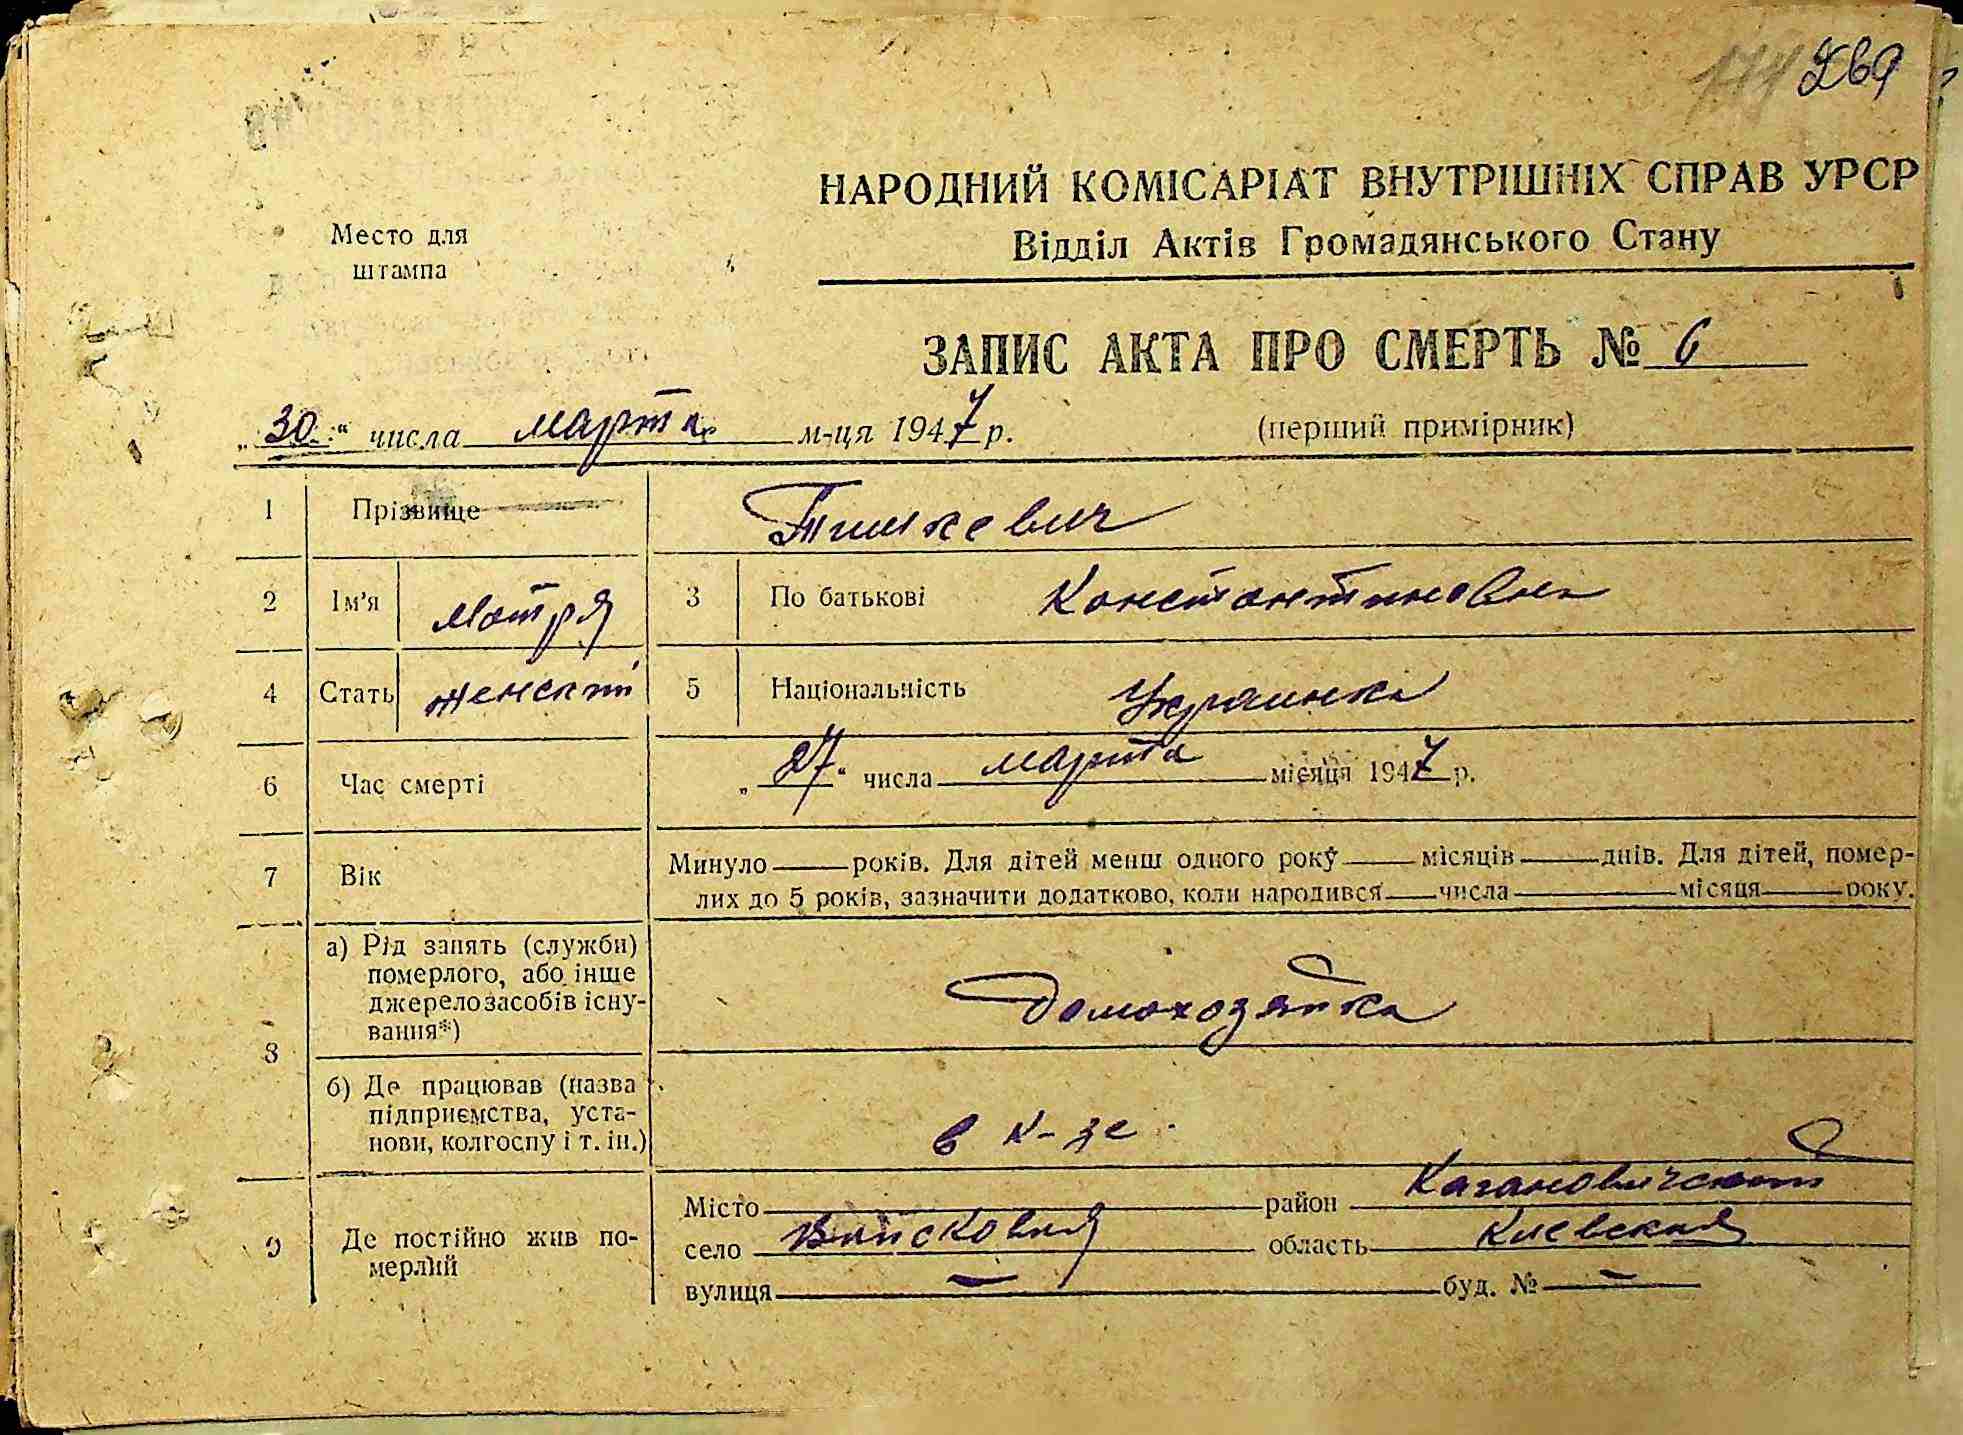 269
НАРОДНИЙ КОМІСАРІАТ ВНУТРІШНІХ СПРАВ УРСР
Відділ Актів Громадянського Стану
Место для
штампа
ЗАПИС АКТА ПРО СМЕРТЬ № 6
„30“ числа марта м-ця 1947 р.
(перший примірник)
1 Прізвище Тишкевич
2 Ім'я Мотря 3 По батькові Константиновна
4 Стать женский 5 Національність Украинка
6 Час смерті „27“ числа марта місяця 1947 р.
7 Вік Минуло — років. Для дітей менш одного року — місяців — днів. Для дітей, помер-
лих до 5 років, зазначити додатково, коли народився — числа — місяця — року.
8 а) Рід занять (служби)
померлого, або інше
джерело засобів існу-
вання*)
Домохозяйка
б) Де працював (назва
підприємства, уста-
нови, колгоспу і т. ін.)
в к-зе
9 Де постійно жив по-
мерлий
Місто район Кагановичский
село область Киевская
вулиця — буд. № —